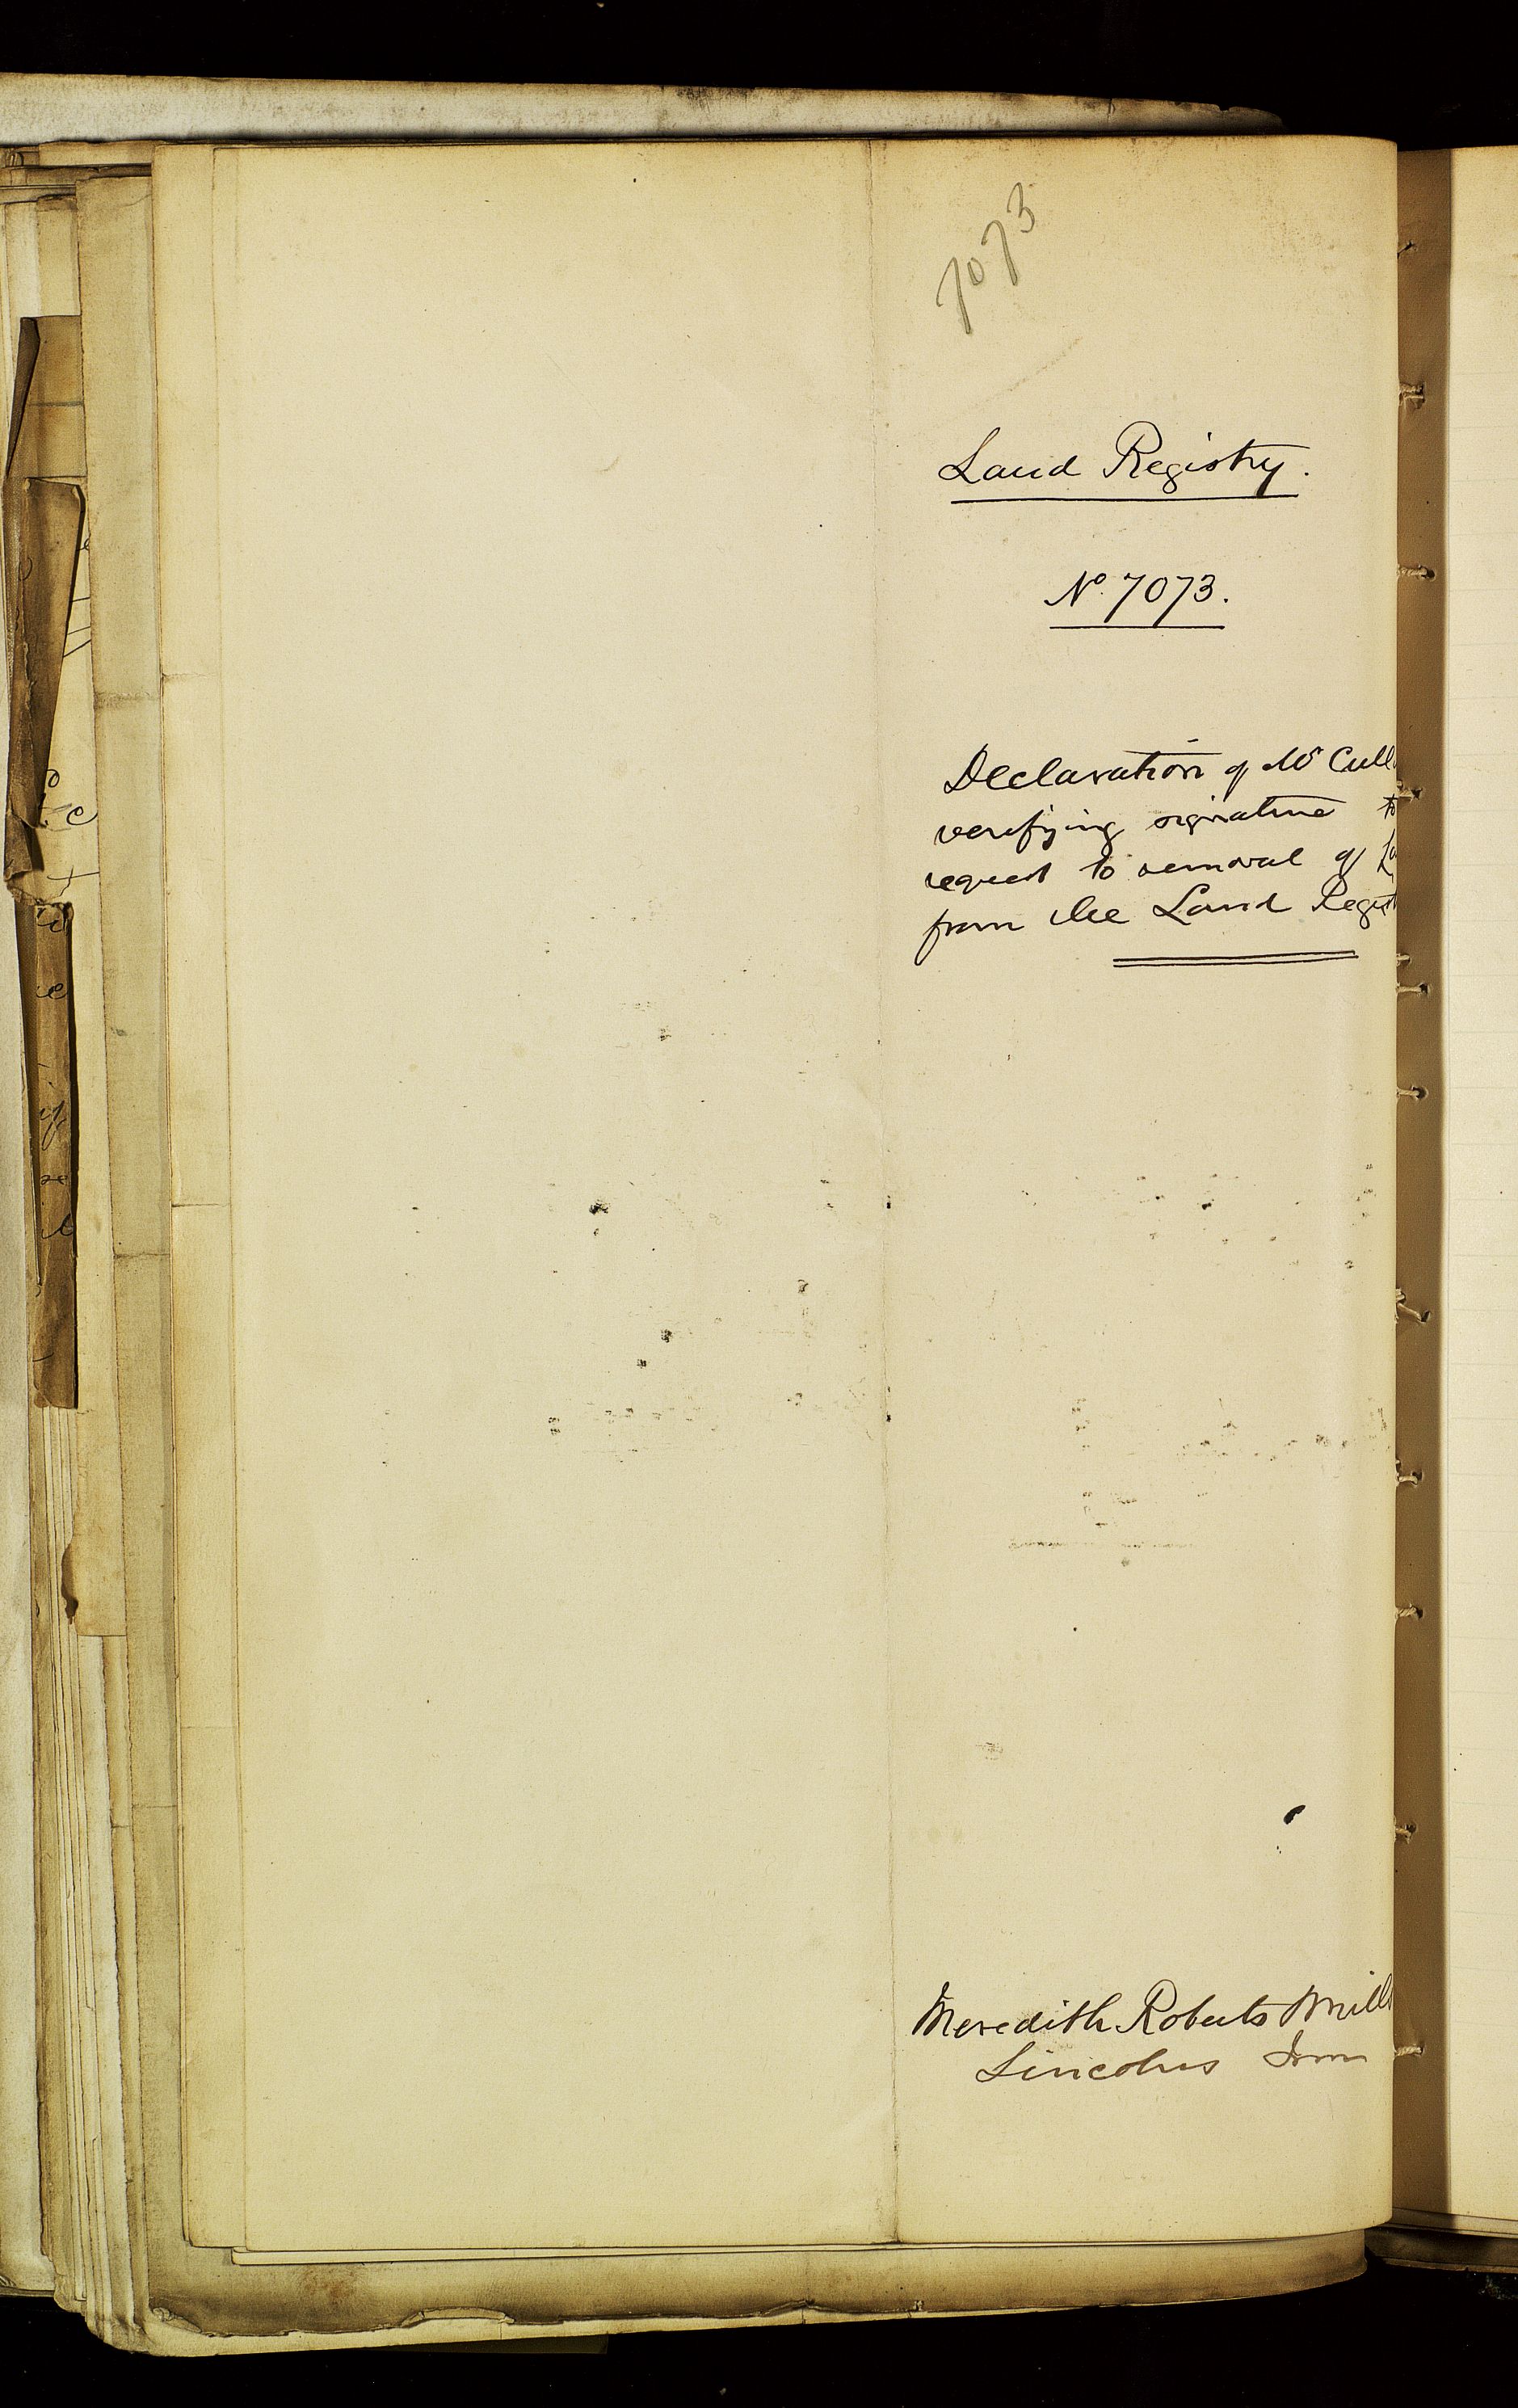 7073
Land Registry.
No. 7073.
Declaration of Mr Cull
verifying signature to
request to removal of
from the Land Regist
Meredith Roberts Mills
Lincolns Inn